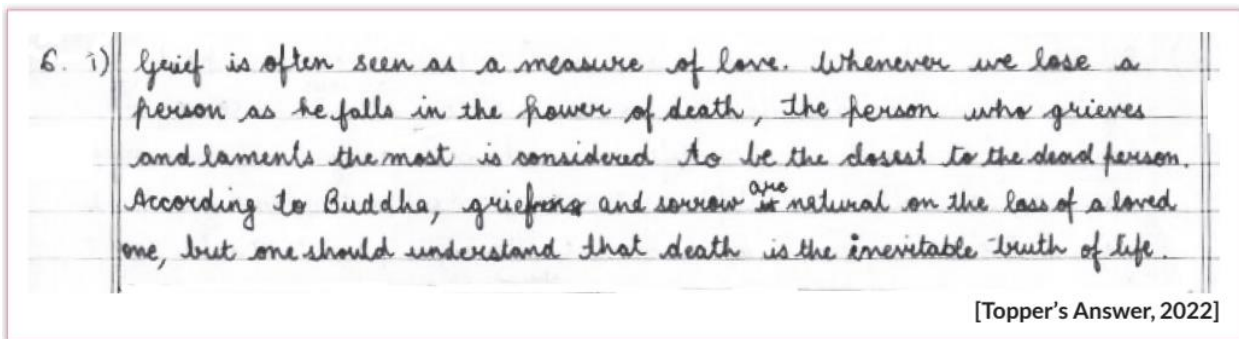 6. i) Grief is often seen as a measure of love. Whenever we lose a
person as he falls in the power of death, the person who grieves
and laments the most is considered to be the closest to the dead person.
According to Buddha, grief and sorrow are natural on the loss of a loved
one, but one should understand that death is the inevitable truth of life.
[Topper's Answer, 2022]